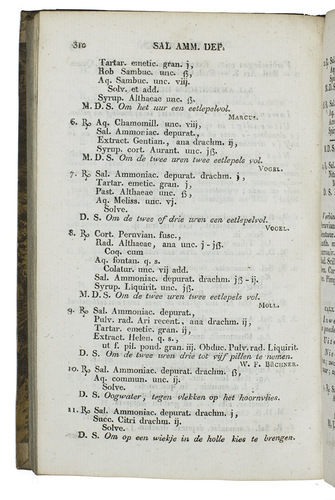 310 SAL AMM. DEP.
Tartar. emetic. gran. j,
Rob Sambuc. unc. ß,
Aq. Sambuc. unc. viij,
Solv. et add.
Syrup. Althaeae unc. ß.
M. D. S. Om het uur een eetlepelvol.
MARCUS.
6. ℞ Aq. Chamomill. unc. viij,
Sal. Ammoniac. depurat.,
Extract. Gentian., ana drachm. ij,
Syrup. cort. Aurant. unc. jß.
M. D. S. Om de twee uren twee eetlepels vol.
VOGEL.
7. ℞ Sal. Ammoniac. depurat. drachm. j,
Tartar. emetic. gran. j,
Past. Althaeae unc. ß,
Aq. Meliss. unc. vj.
Solve.
D. S. Om de twee of drie uren een eetlepelvol.
VOGEL.
8. ℞ Cort. Peruvian. fusc.,
Rad. Althaeae, ana unc. j-jß.
Coq. cum
Aq. fontan. q. s.
Colatur. unc. vij add.
Sal. Ammoniac. depurat. drachm. jß - ij.
Syrup. Liquirit. unc. jß.
M. D. S. Om de twee uren twee eetlepels vol.
MOLL.
9. ℞ Sal. Ammoniac. depurat.,
Pulv. rad. Ari recent., ana drachm. ij,
Tartar. emetic. gran. ij,
Extract. Helen. q. s.,
ut f. pil. pond. gran. iij. Obduc. Pulv. rad. Liquirit.
D. S. Om de twee uren drie tot vijf pillen te nemen.
W. F. BECHNER.
10. ℞ Sal. Ammoniac. depurat. drachm. ß,
Aq. commun. unc. ij.
Solve.
D. S. Oogwater, tegen vlekken op het hoornvlies.
11. ℞ Sal. Ammoniac. depurat. drachm. j,
Succ. Citri drachm. ij.
Solve.
D. S. Om op een wiekje in de holle kies te brengen.